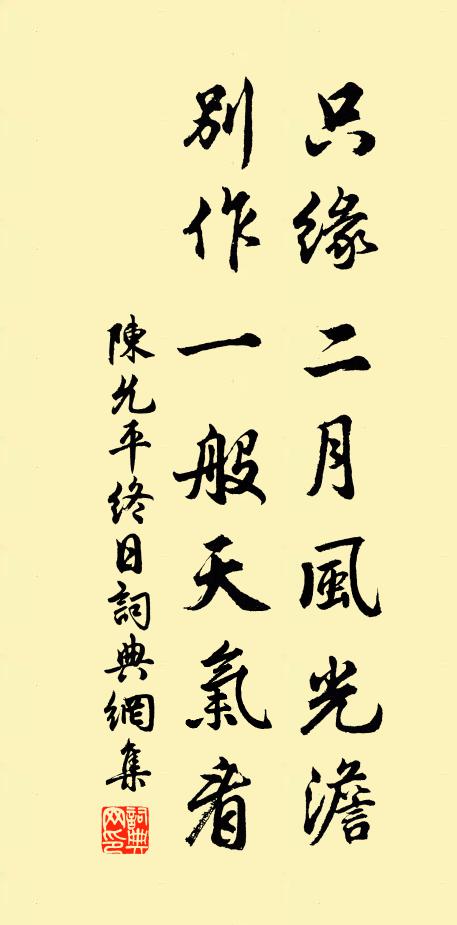 只緣二月風光澹
別作一般天氣看
陳允平終日詞典網集
詞典网印